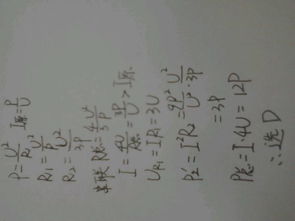 P=U²/R₁ I原=P/U
R₁=U²/P
R₂=U²/3P
串联 R总=4U²/3P
I=4U/R总=3P/U>I原
U_R₁=IR₁=3U
P₂'=I²R₂=9P²/U²·U²/3P
=3P
P总=I·4U=12P
∴选D